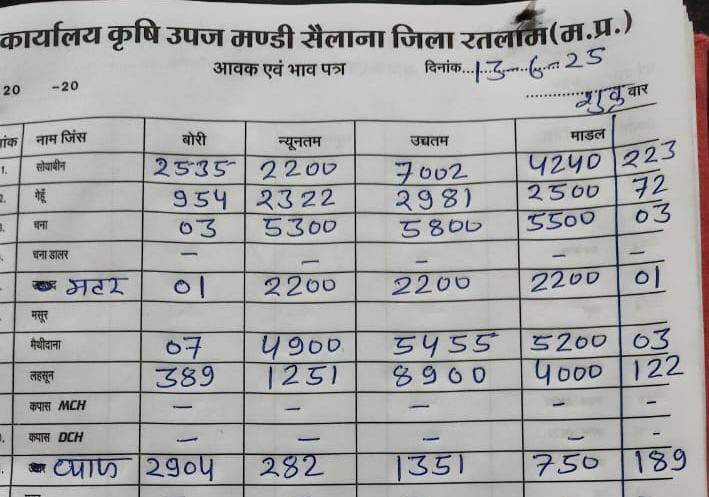 कार्यालय कृषि उपज मण्डी सैलाना जिला रतलाम(म.प्र.)
आवक एवं भाव पत्र दिनांक...13-6-25
20 -20 शुक्रवार
नाम जिंस बोरी न्यूनतम उच्चतम माडल
1. सोयाबीन 2535 2200 7002 4240 223
2. गेहूँ 954 2322 2981 2500 72
चना 03 5300 5800 5500 03
चना डालर - - - - -
मटर 01 2200 2200 2200 01
मसूर
मैथीदाना 07 4900 5455 5200 03
लहसून 389 1251 8900 4000 122
कपास MCH - - - - -
कपास DCH - - - - -
प्याज 2904 282 1351 750 189